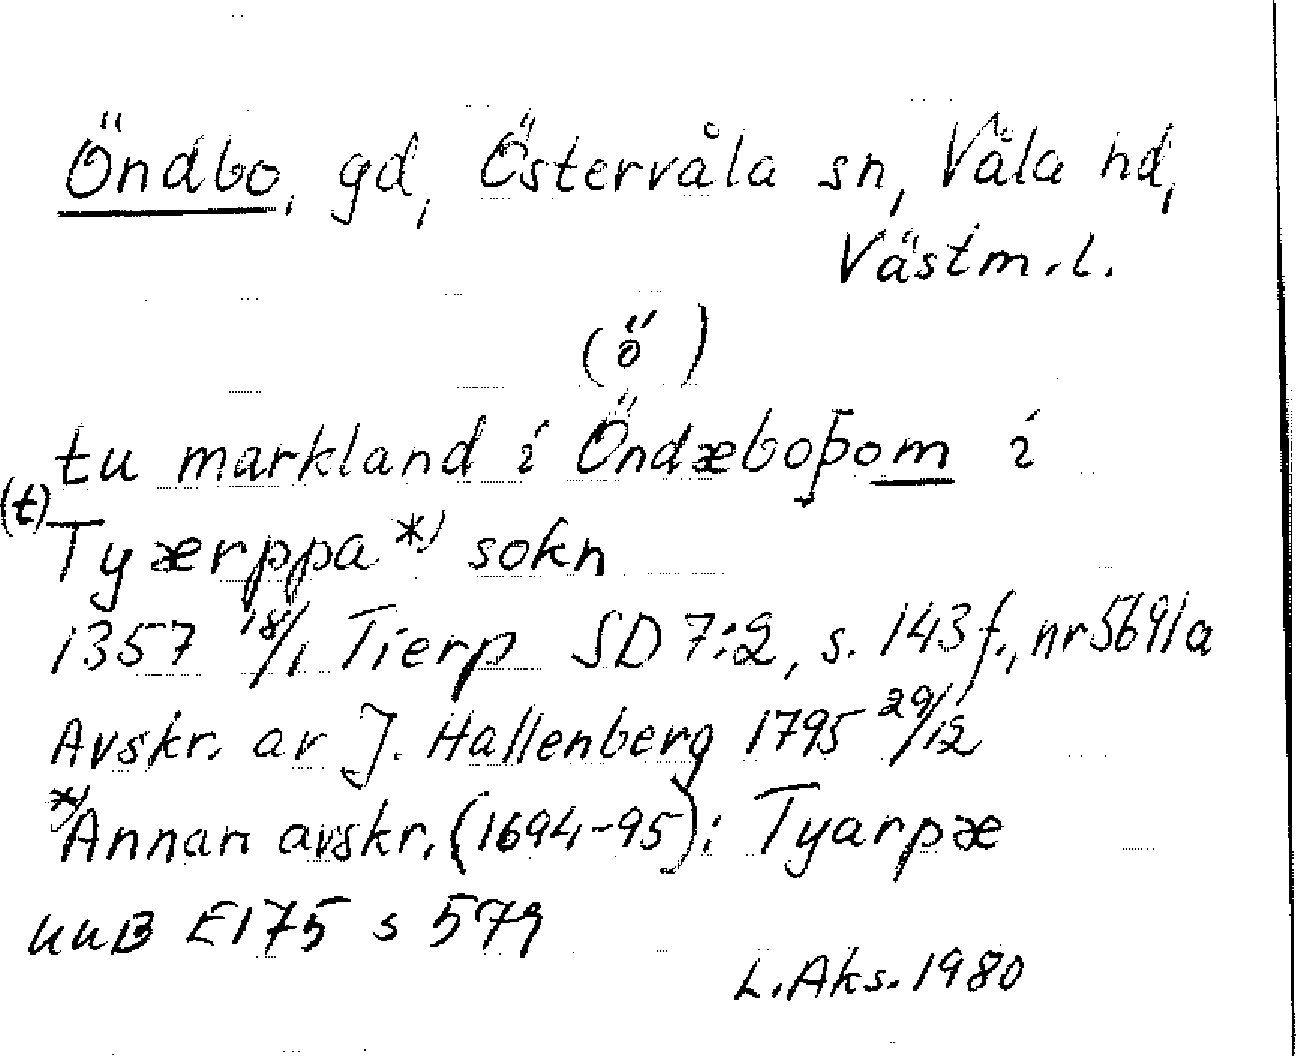 Öndbo, gd, Östervåla sn, Våla hd,
Västm.l.
(ö )
tu markland i Öndæboþom i
(t) Tyærppa *) sokn
1357 18/1 Tierp SD 7:2, s. 143 f., nr 5691a
Avskr. av J. Hallenberg 1795 29/12
*) Annan avskr. (1694-95): Tyarpæ
UUB E175 s 579
L. Aks. 1980